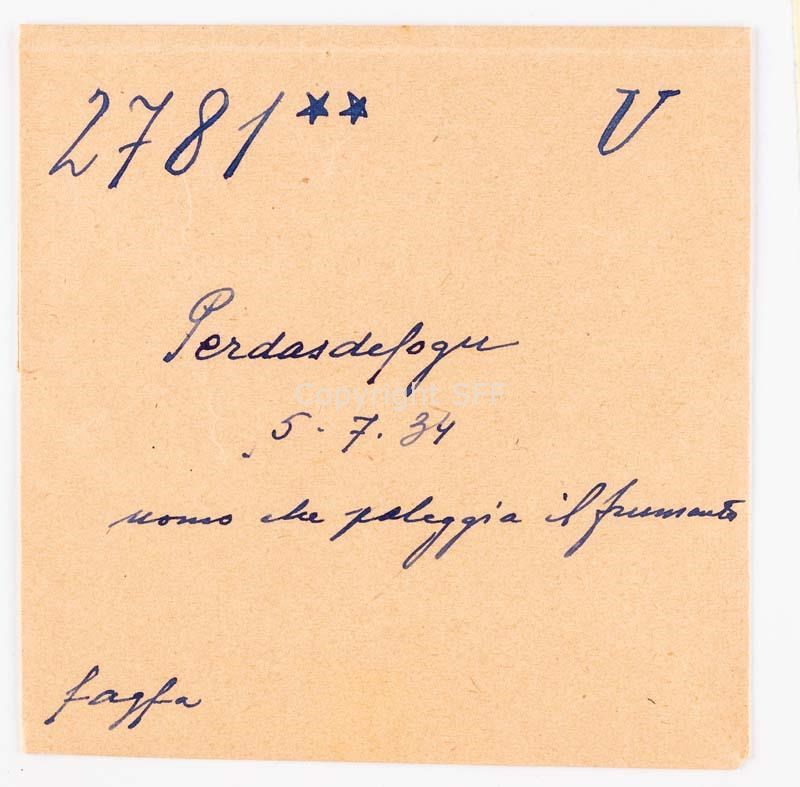 2781** V
Perdasdefogu
Copyright SFF
5-7.34
uomo che paleggia il frumento
fagfa